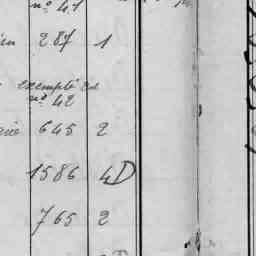 nº 41
287 1
exempté
nº 42
645 2
1586 4D
765 2